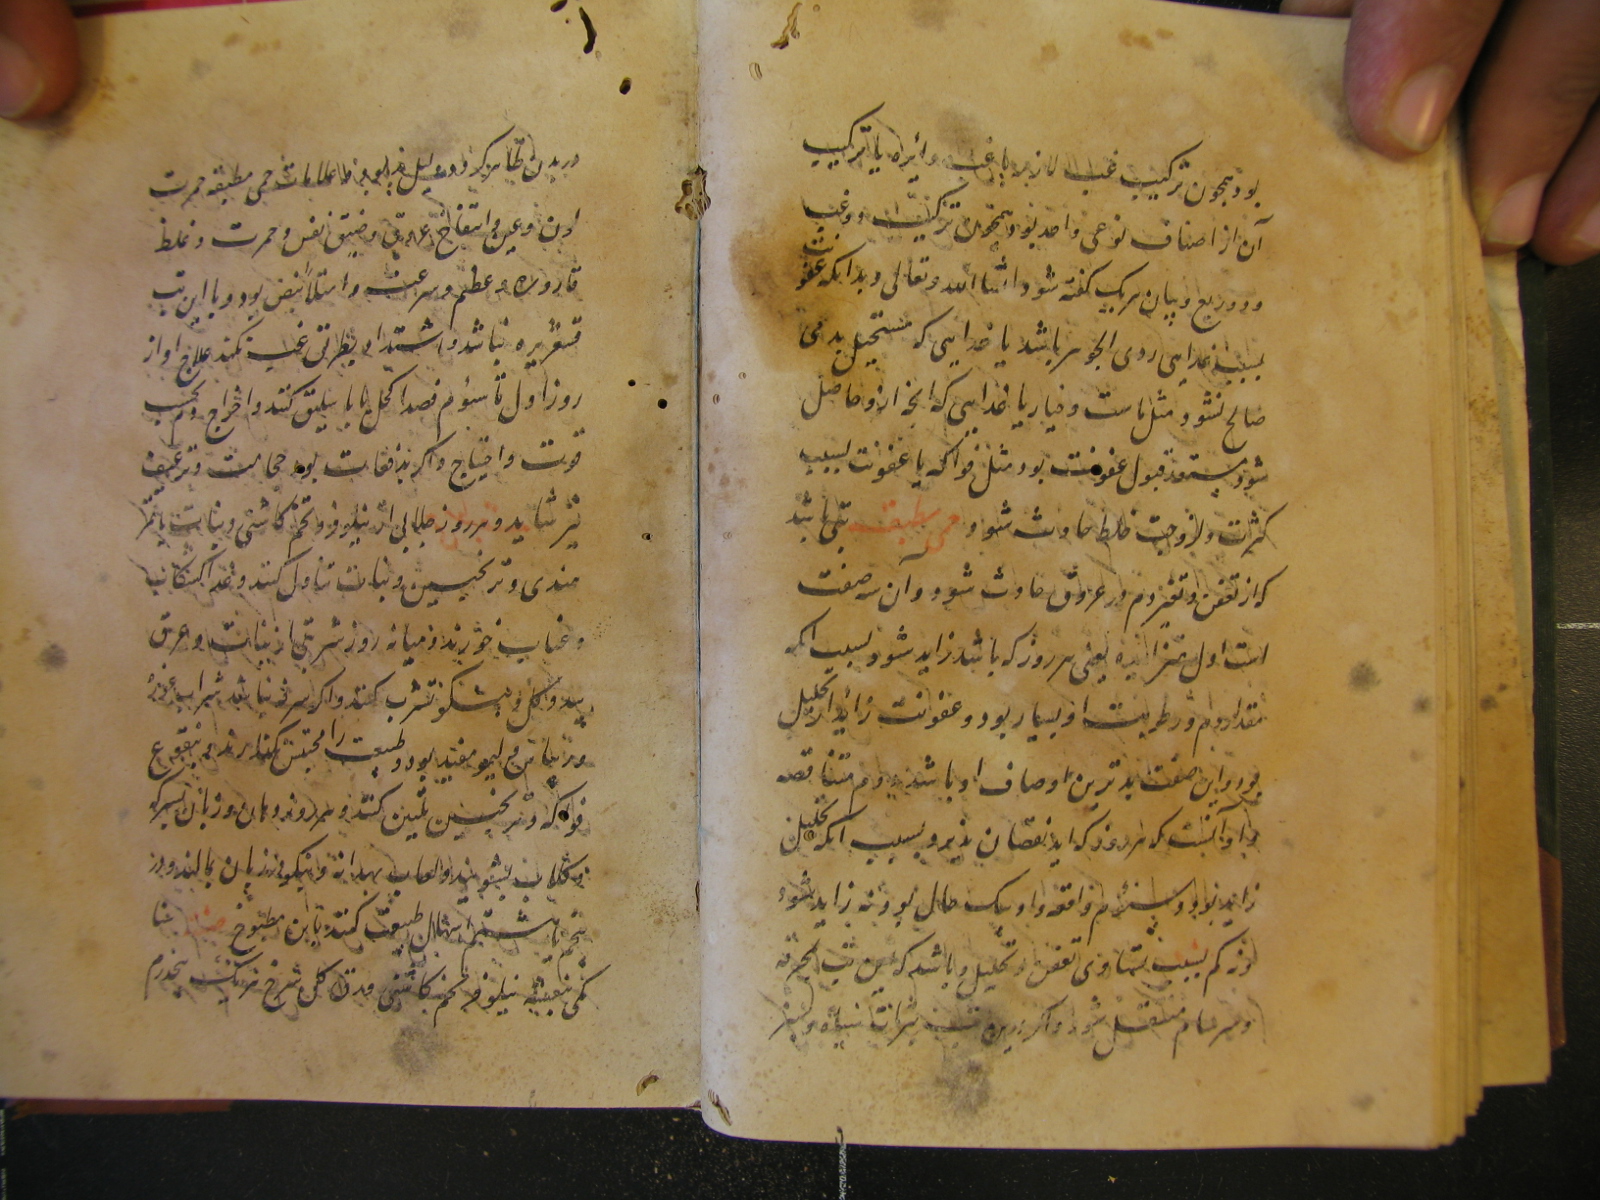 بود همچون ترکیب غب لازمه با غب دائره یا ترکیب
آن از اصناف نوعی واحد بود همچون ترکیب دو غب
و دو ربع و بیان هر یک گفته شود انشاالله وتعالی و بدانکه عفونت
بسبب غذایی ردی الجوهر باشد یا غذایی که مستحیل بدمی
صالح نشود مثل ماست و خیار یا غذایی که انجره ازو حاصل
شود مستعد قبول عفونت بود مثل فواکه یا عفونت بسبب
کثرت و لزوجت خلط حادث شود و حمی مطبقه تبی باشد
که از تعفن و تغیر دم در عروق حادث شود و آن سه صفت
است اول متزائده یعنی هر روز که باشد زاید شود بسبب انکه
مقدار دم و رطوبت او بسیار بود و عفونت زائد از تحلیل
بود و این صفت بدترین اوصاف او باشد دوم متناقصه
و او آنست که هر روز که اید نقصان پذیرد بسبب انکه تحلیل
زاید بود سئوم واقفه و او یک حال بود نه زاید شود
نه کم بسبب تساوی تعفن و تحلیل و باشد که این تب بمحرقه
و سرسام منتقل شود و اگر درین تب
در بدن ظاهر کردد علامات حمی مطبقه حمرت
لون و عین و انتفاخ عروق و ضیق نفس و حمرت و غلظ
قاروره و عظم و سرعت و امتلا نبض بود و با این تب
قشعریره نباشد و اشتداد بطریق غب نکند علاج او از
روز اول تا سئوم فصد اکحل یا باسلیق کنند و اخراج دم بحسب
قوت و احتیاج و اگر بدفعات بود حجامت و ترعیف
نیز شاید و هر روز جلابی از نیلوفر و تخم کاشنی و نبات یا تمر
هندی و ترنجبین و نبات تناول کنند و غذا کشکاب
و عناب خورند و میانه روز شربتی از نبات و عرق
بید و گل و بیشکو تشرب کنند و اگر سرفه نباشد شراب غوره
و ریباس و لیمو مفید بود و طبیعت را محتبس نگذارند و بنقوع
فواکه و ترنجبین تلیین کنند و هر روز دهان و زبان بسرکه
و گلاب بشویند و لعاب بهدانه و نیکو بر زبان بمالند و روز
پنجم یا ششم اسهال طبیعت کنند باین مطبوخ سنا
مکی بنفشه نیلوفر تخم کاشنی گل سرخ هر یک پنجدرم